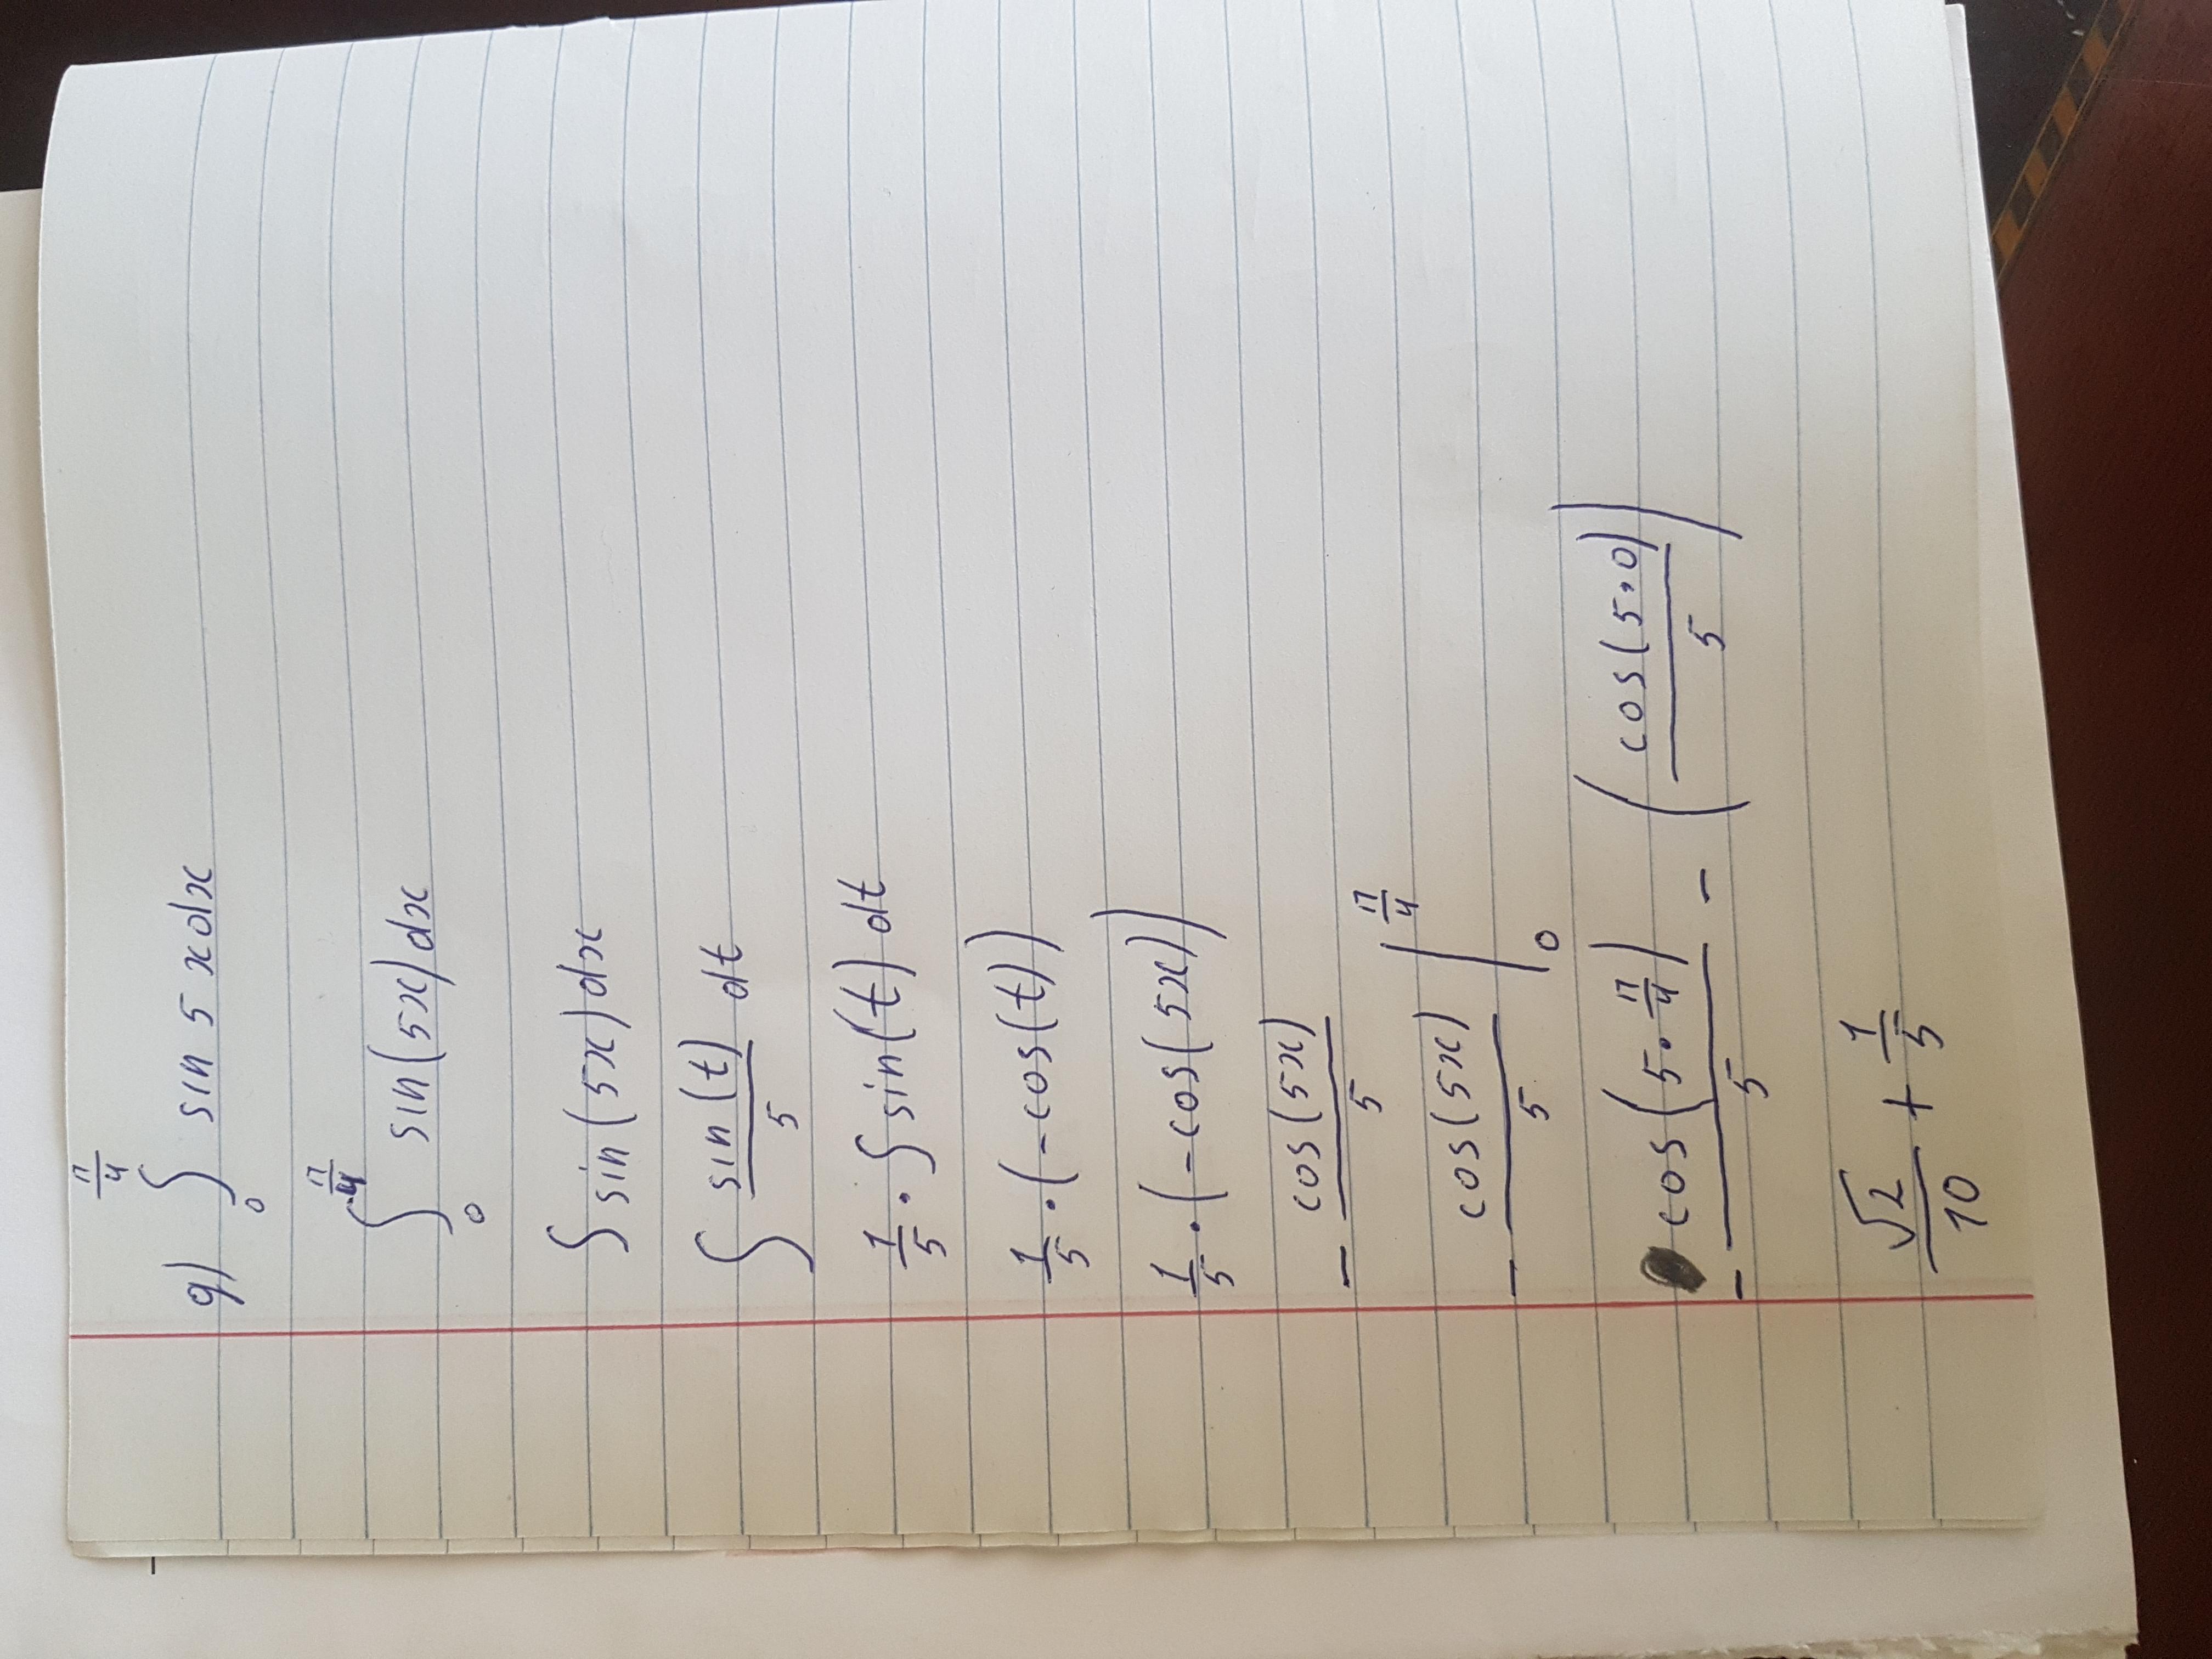 9) ∫₀^(π/4) sin 5 x dx
∫₀^(π/4) sin(5x) dx
∫ sin(5x) dx
∫ sin(t)/5 dt
1/5 · ∫ sin(t) dt
1/5 · (-cos(t))
1/5 · (-cos(5x))
- cos(5x)/5
- cos(5x)/5 |₀^(π/4)
- cos(5·π/4)/5 - (cos(5·0)/5)
√2/10 + 1/5